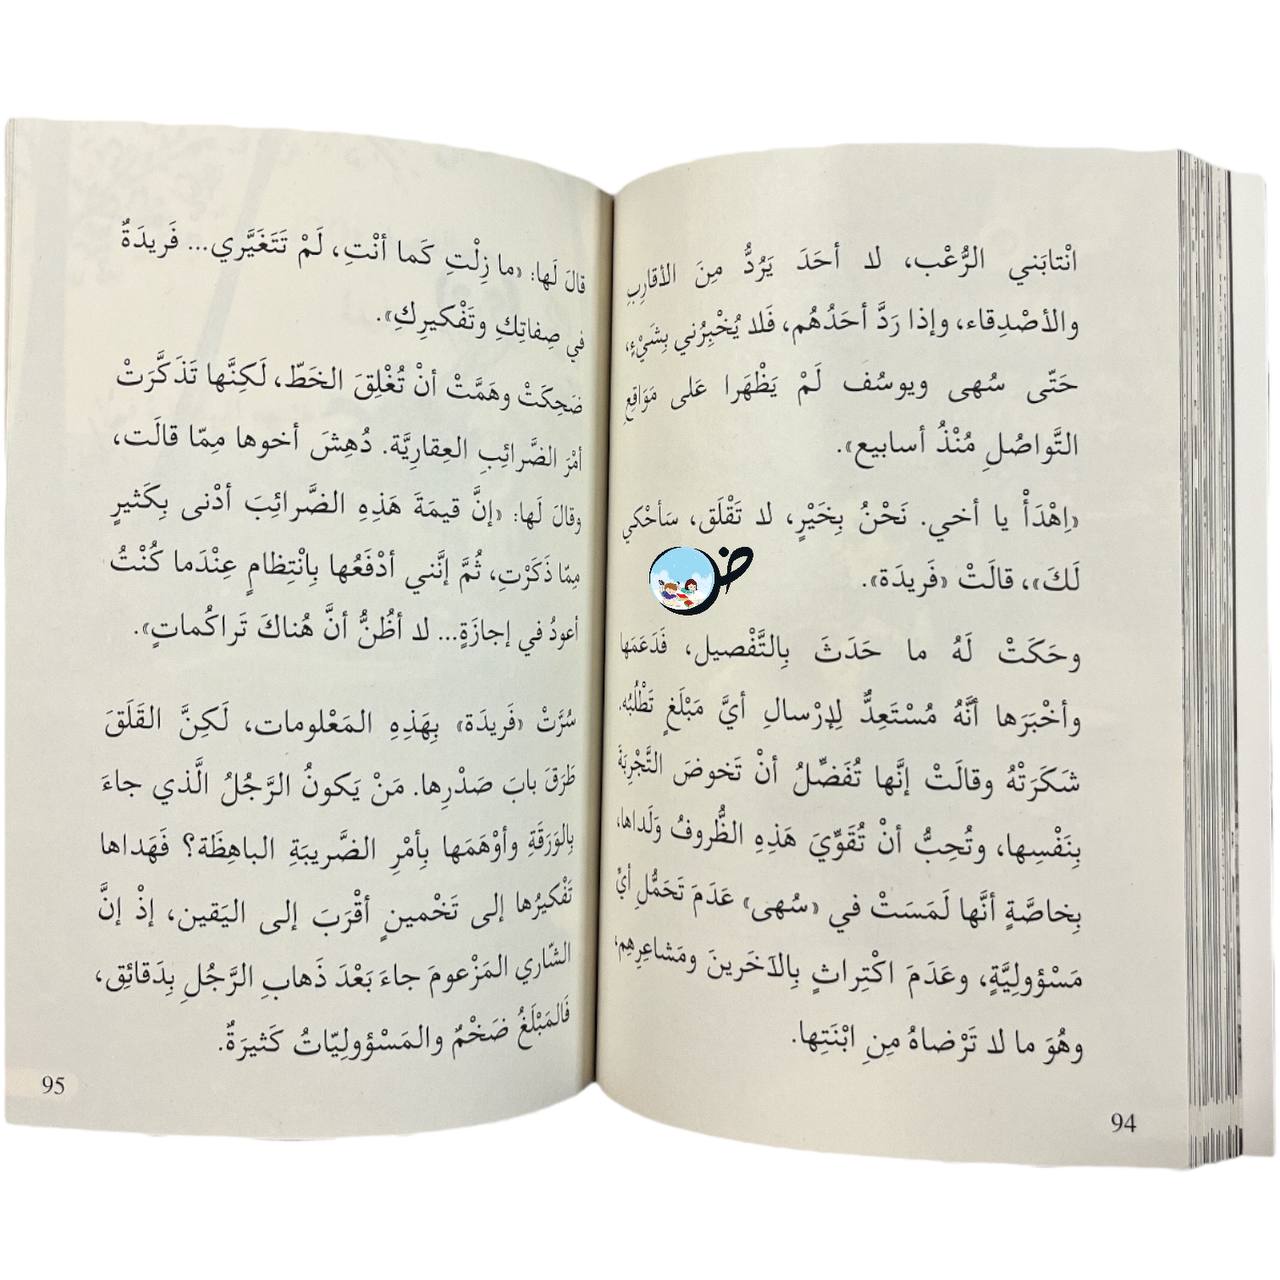 انْتابَني الرُّعْب، لا أحَدَ يَرُدُّ مِنَ الأقارِبِ
والأصْدِقاء، وإذا رَدَّ أحَدُهُم، فَلا يُخْبِرُني بِشَيْءٍ،
حَتّى سُهى ويوسُف لَمْ يَظْهَرا عَلى مَوَاقِعِ
التَّواصُلِ مُنْذُ أسابيع».
«اِهْدَأْ يا أخي. نَحْنُ بِخَيْرٍ، لا تَقْلَق، سَأحْكي
لَكَ»، قالَتْ «فَريدَة».
ض
وحَكَتْ لَهُ ما حَدَثَ بِالتَّفْصيل، فَدَعَمَها
وأخْبَرَها أنَّهُ مُسْتَعِدٌّ لِإرْسالِ أيَّ مَبْلَغٍ تَطْلُبُه.
شَكَرَتْهُ وقالَتْ إنَّها تُفَضِّلُ أنْ تَخوضَ التَّجْرِبَةَ
بِنَفْسِها، وتُحِبُّ أنْ تُقَوِّيَ هَذِهِ الظُّروفُ وَلَداها،
بِخاصَّةٍ أنَّها لَمَسَتْ في «سُهى» عَدَمَ تَحَمُّلِ أيِّ
مَسْؤولِيَّةٍ، وعَدَمَ اكْتِراثٍ بِالآخَرينَ ومَشاعِرِهِم،
وهُوَ ما لا تَرْضاهُ مِنِ ابْنَتِها.
94
قالَ لَها: «ما زِلْتِ كَما أنْتِ، لَمْ تَتَغَيَّري... فَريدَةٌ
في صِفاتِكِ وتَفْكيرِكِ».
ضَحِكَتْ وهَمَّتْ أنْ تُغْلِقَ الخَطّ، لَكِنَّها تَذَكَّرَتْ
أمْرَ الضَّرائِبِ العِقارِيَّة. دُهِشَ أخوها مِمّا قالَت،
وقالَ لَها: «إنَّ قيمَةَ هَذِهِ الضَّرائِبَ أدْنى بِكَثيرٍ
مِمّا ذَكَرْتِ، ثُمَّ إنَّني أدْفَعُها بِانْتِظامٍ عِنْدَما كُنْتُ
أعودُ في إجازَةٍ... لا أظُنُّ أنَّ هُناكَ تَراكُماتٍ».
سُرَّتْ «فَريدَة» بِهَذِهِ المَعْلومات، لَكِنَّ القَلَقَ
طَرَقَ بابَ صَدْرِها. مَنْ يَكونُ الرَّجُلُ الَّذي جاءَ
بِالوَرَقَةِ وأوْهَمَها بِأمْرِ الضَّريبَةِ الباهِظَة؟ فَهَداها
تَفْكيرُها إلى تَخْمينٍ أقْرَبَ إلى اليَقين، إذْ إنَّ
الشّاري المَزْعومَ جاءَ بَعْدَ ذَهابِ الرَّجُلِ بِدَقائِق،
فَالمَبْلَغُ ضَخْمٌ والمَسْؤولِيّاتُ كَثيرَةٌ.
95